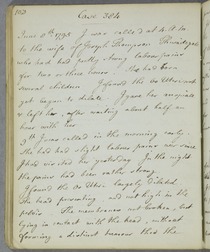 103
Case. 304
June 9th 179 I was called at 4 A.M
to the wife of Joseph Thompson
who had had pretty strong labour pains
for two or three hours. She had born
several children I found the Os Uteri not
yet begun to dilate. I gave her
& left her, after waiting about half an
hour with her
I was called in the morning early.
She had had slight labour pains ever since
I had visited her yesterday. In the night
the pains had been rather strong.
I found the Os Uteri largely dilated,
the head presenting and not high in the
pelvis The membranes not broken, but
lying in contact with the head, without
forming a distinct tumour that the